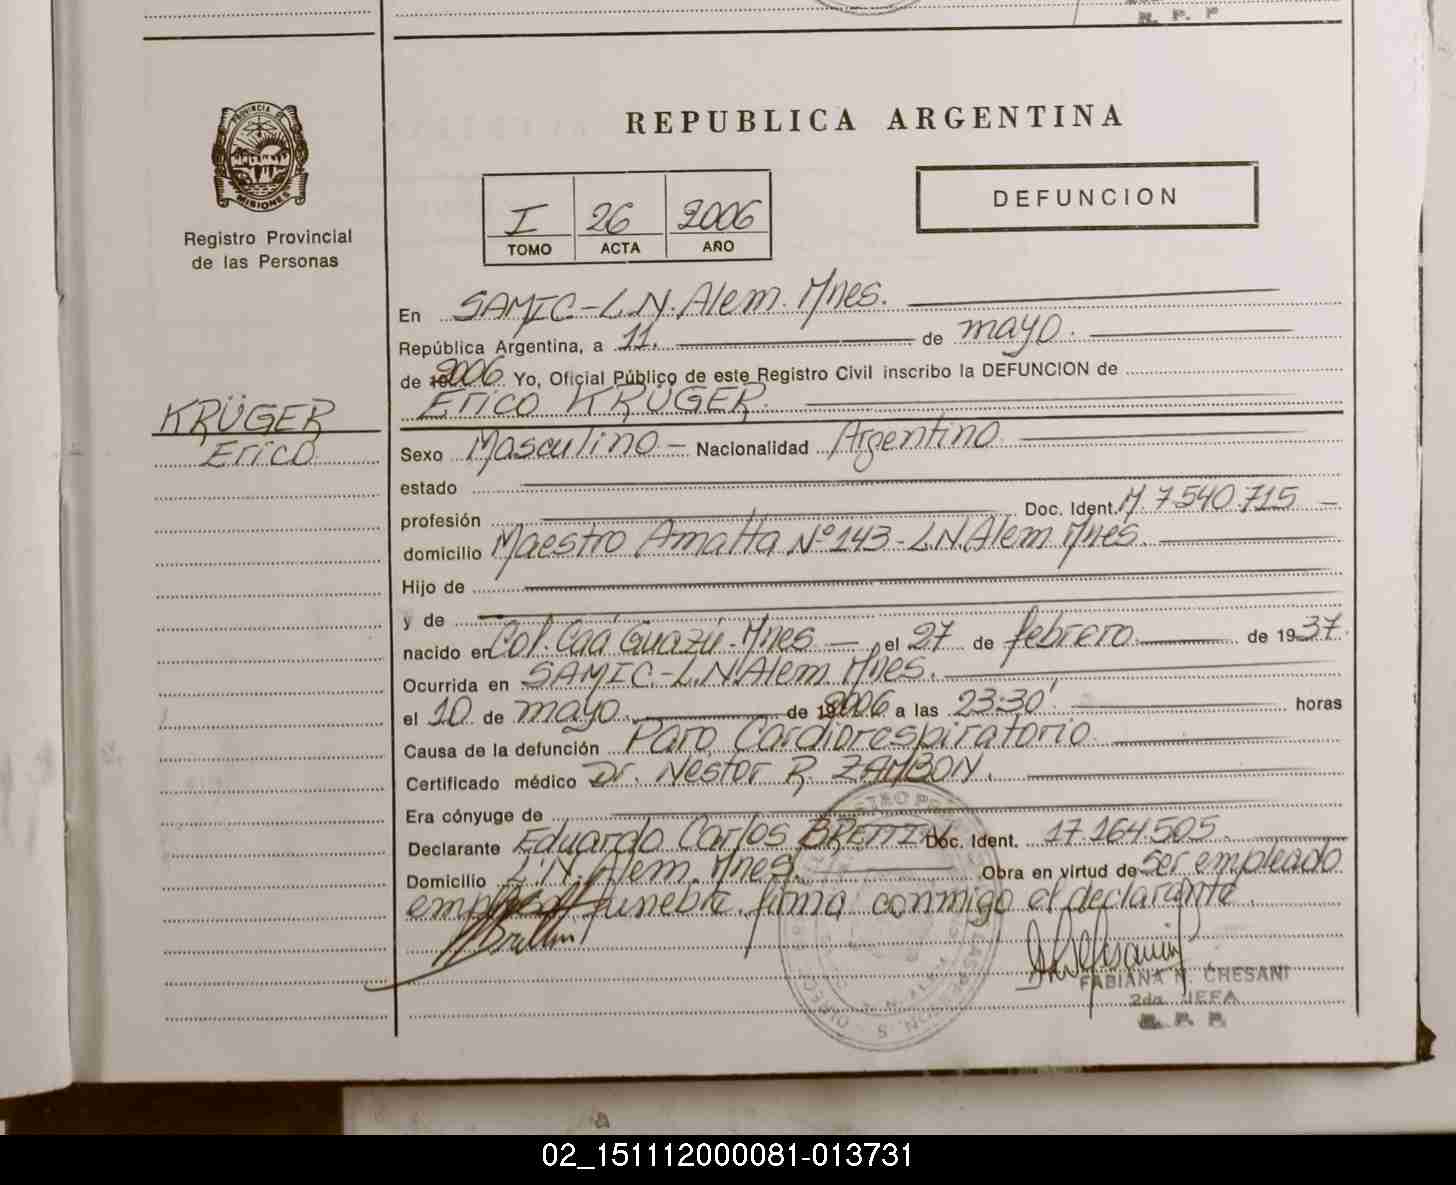 R. P. P
PROVINCIA DE
MISIONES
Registro Provincial
de las Personas
REPUBLICA ARGENTINA
DEFUNCION
I 26 2006
TOMO ACTA AÑO
En SAMIC-L.N. Alem. Mnes.
República Argentina, a 11. de mayo.
de 2006 Yo, Oficial Público de este Registro Civil inscribo la DEFUNCION de
Erico KRÜGER.
KRÜGER
Erico
Sexo Masculino - Nacionalidad Argentino
estado
profesión Doc. Ident. M. 7.540.715 -
domicilio Maestro Amatta Nº 143 - L.N. Alem Mnes.
Hijo de
y de
nacido en Col. Caá Guazú - Mnes - el 27 de febrero de 1937.
Ocurrida en SAMIC.-L.N. Alem. Mnes.
el 10 de mayo. de 2006 a las 23:30' horas
Causa de la defunción Paro Cardiorespiratorio
Certificado médico Dr. Nestor R. ZAMBON.
Era cónyuge de
Declarante Eduardo Carlos Doc. Ident. 17.164.505.
Domicilio L.N. Alem. Mnes. Obra en virtud de Ser empleado
funebre. firma conmigo el declarante.
FABIANA N. CHESANI
2da JEFA
R. P. P.
02_151112000081-013731